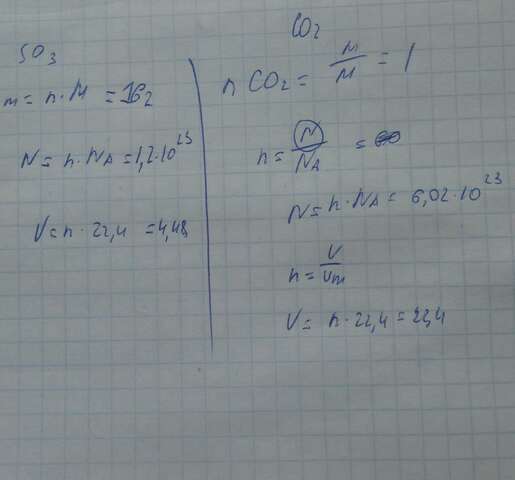 SO3
m = n · M = 16г
N = n · NA = 1,2 · 10^23
V = n · 22,4 = 4,48
CO2
n CO2 = m/M = 1
n = N/NA =
N = n · NA = 6,02 · 10^23
n = V/Vm
V = n · 22,4 = 22,4